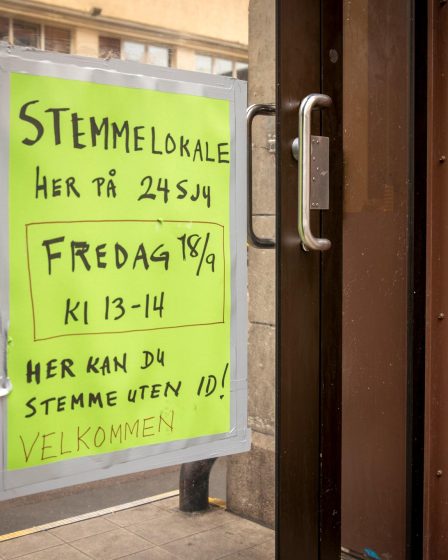 STEMMELOKALE
HER PÅ 24SJU
FREDAG 18/9
Kl 13-14
HER KAN DU
STEMME UTEN ID!
VELKOMMEN